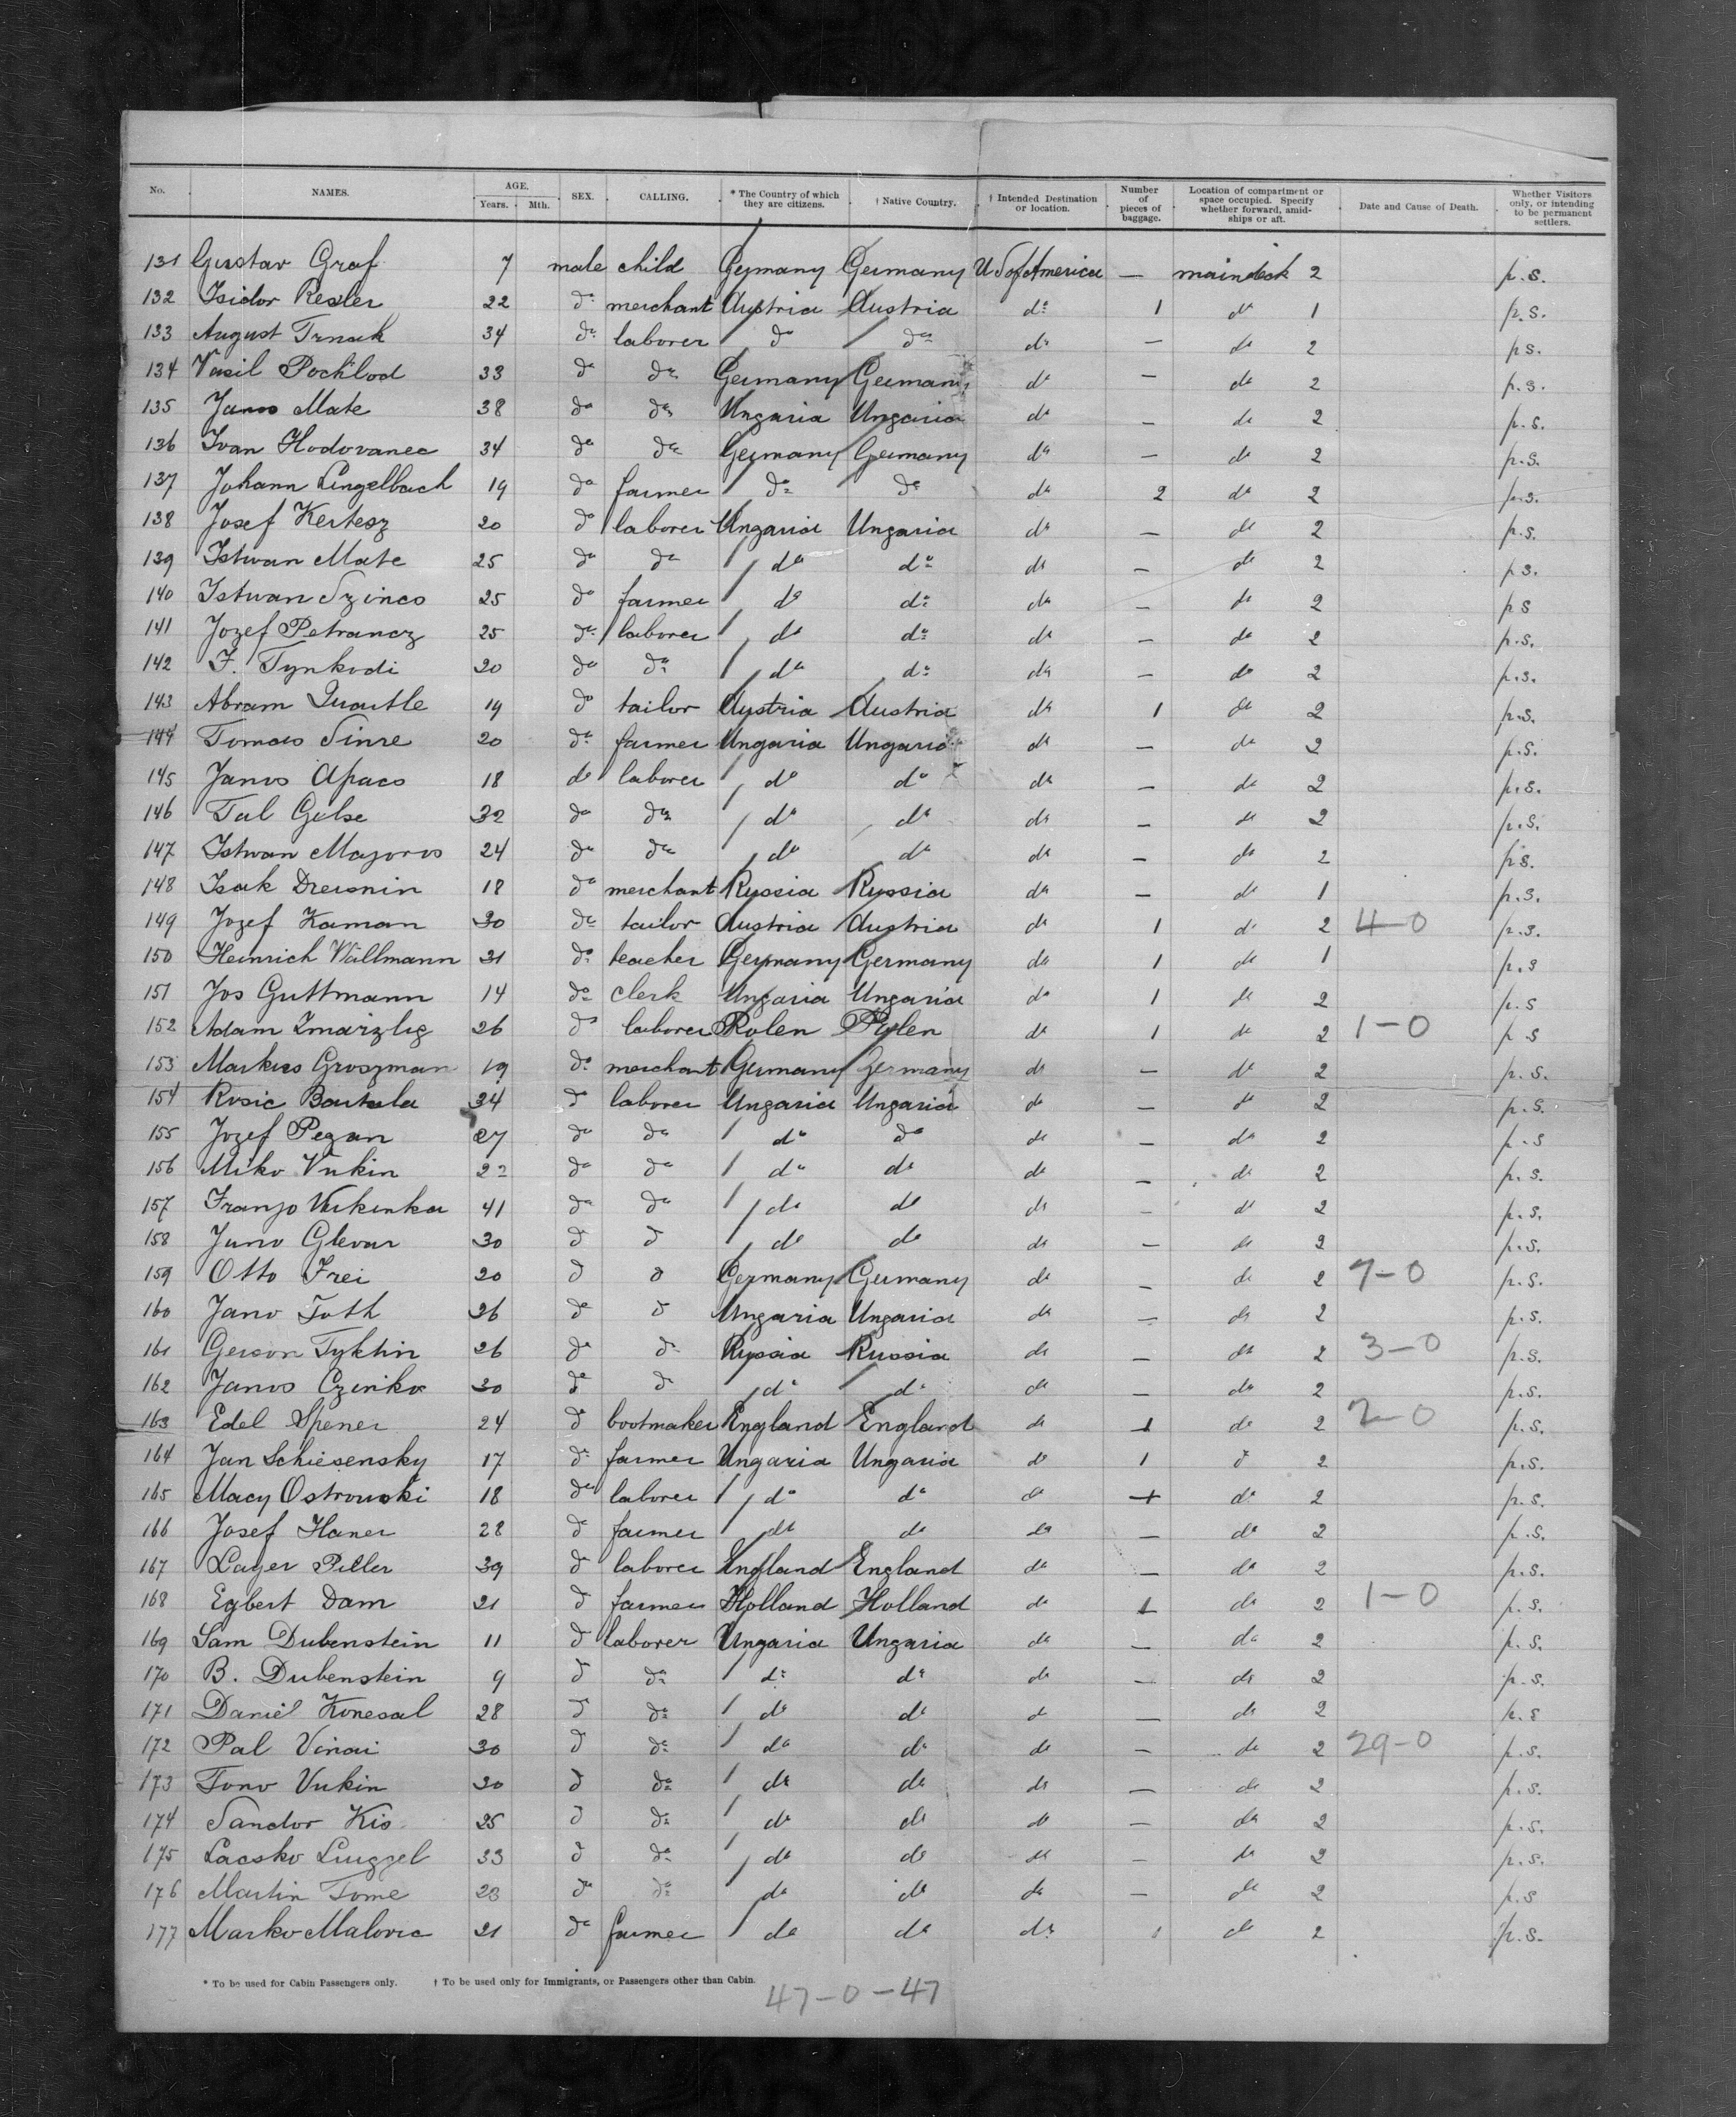 No. NAMES. AGE. Years. Mth. SEX. CALLING. * The Country of which they are citizens. † Native Country. † Intended Destination or location. Number of pieces of baggage. Location of compartment or space occupied. Specify whether forward, amidships or aft. Date and Cause of Death. Whether Visitors only, or intending to be permanent settlers.
131 Gustav Graf 7 male child Germany Germany U S of America — maindeck 2 p.s.
132 Isidor Resler 22 do merchant Austria Austria do 1 do 1 p.s.
133 August Trnak 34 do laborer do do do — do 2 p.s.
134 Vasil Pochlod 33 do do Germany Germany do — do 2 p.s.
135 Janos Mate 38 do do Ungaria Ungaria do — do 2 p.s.
136 Ivan Hodovanec 34 do do Germany Germany do — do 2 p.s.
137 Johann Lingelbach 19 do farmer do do do 2 do 2 p.s.
138 Josef Kertesz 20 do laborer Ungaria Ungaria do — do 2 p.s.
139 Istwan Mate 25 do do do do do — do 2 p.s.
140 Istwan Szincs 25 do farmer do do do — do 2 p s
141 Jozef Petrancz 25 do laborer do do do — do 2 p.s.
142 F. Tynkodi 20 do do do do do — do 2 p.s.
143 Abram Quartle 19 do tailor Austria Austria do 1 do 2 p.s.
144 Tomas Sinre 20 do farmer Ungaria Ungaria do — do 2 p.s.
145 Janos Apacs 18 do laborer do do do — do 2 p.s.
146 Tal Gelse 32 do do do do do — do 2 p.s.
147 Istwan Mayoros 24 do do do do do — do 2 p s.
148 Isak Dresnin 18 do merchant Russia Russia do — do 1 p.s.
149 Jozef Kaman 30 do tailor Austria Austria do 1 do 2 4-0 p.s.
150 Heinrich Wallmann 21 do teacher Germany Germany do 1 do 1 p.s
151 Jos Guttmann 14 do clerk Ungaria Ungaria do 1 do 2 p.s
152 Adam 26 do laborer Polen Polen do 1 do 2 1-0 p s
153 Markus Groszman 19 do merchant Germany Germany do — do 2 p.s.
154 Rosic Bartala 34 do laborer Ungaria Ungaria do — do 2 p.s.
155 Jozef Pezan 27 do do do do do — do 2 p.s
156 Miko Vukin 22 do do do do do — do 2 p.s.
157 Franjo Vukinka 41 do do do do do — do 2 p.s.
158 Juno Glevar 30 do do do do do — do 2 p.s.
159 Otto Frei 20 do do Germany Germany do — do 2 7-0 p.s.
160 Jano Toth 26 do do Ungaria Ungaria do — do 2 p.s.
161 Gerson Tyktin 26 do do Russia Russia do — do 2 3-0 p.s.
162 Janos Czinko 30 do do do do do — do 2 p.s.
163 Edel Spener 24 do bootmaker England England do 1 do 2 2-0 p.s.
164 Jan Schiesensky 17 do farmer Ungaria Ungaria do 1 do 2 p.s.
165 Macy Ostrowski 18 do laborer do do do — do 2 p.s.
166 Josef Haner 28 do farmer do do do — do 2 p.s.
167 Layer Piller 39 do laborer England England do — do 2 p.s.
168 Egbert Dam 21 do farmer Holland Holland do 1 do 2 1-0 p.s.
169 Sam Dubenstein 11 do laborer Ungaria Ungaria do — do 2 p.s.
170 B. Dubenstein 9 do do do do do — do 2 p.s.
171 Daniel Konesal 28 do do do do do — do 2 p.s
172 Pal Vinai 30 do do do do do — do 2 29-0 p.s.
173 Tono Vukin 30 do do do do do — do 2 p.s.
174 Sandor Kis 25 do do do do do — do 2 p.s.
175 Lacsko Luggel 33 do do do do do — do 2 p.s.
176 Martin Tome 23 do do do do do — do 2 p.s
177 Marko Malovic 21 do farmer do do do 1 do 2 p.s.
* To be used for Cabin Passengers only. † To be used only for Immigrants, or Passengers other than Cabin.
47-0-47